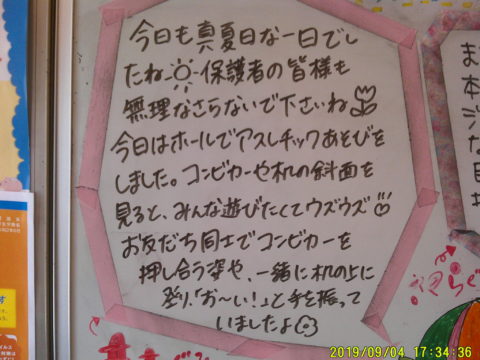 今日も真夏日な一日でし
たね 保護者の皆様も
無理なさらないで下さいね
今日はホールでアスレチックあそびを
しました。コンビカーや机の斜面を
見ると、みんな遊びたくてウズウズ
お友だち同士でコンビカーを
押し合う姿や、一緒に机の上に
登り、「お〜い!」と手を振って
いましたよ
2019/09/04 17:34:36